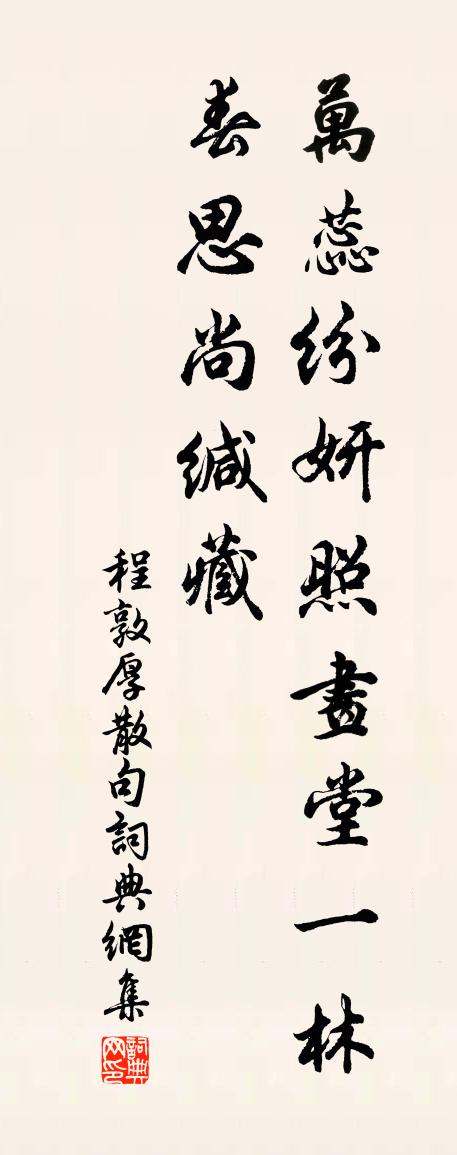 萬蕊紛妍照畫堂一林
春思尚緘藏
程敦厚散句詞典網集
詞典网印